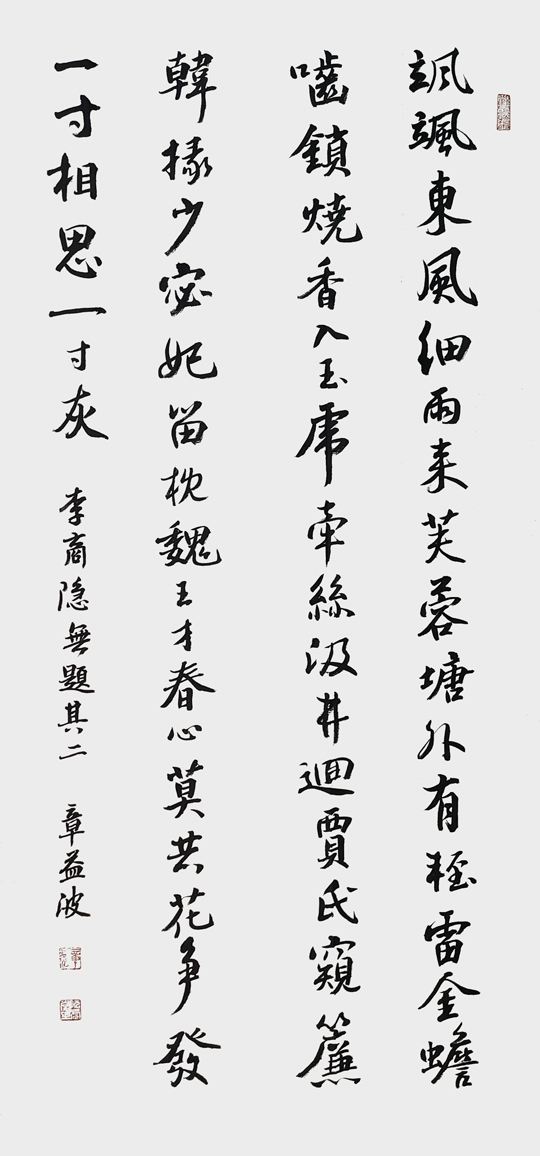 颯颯東風細雨来芙蓉塘外有輕雷金蟾
嚙鎖燒香入玉虎牽絲汲井迴賈氏窺簾
韓掾少宓妃留枕魏王才春心莫共花争發
一寸相思一寸灰 李商隐無題其二 章益波